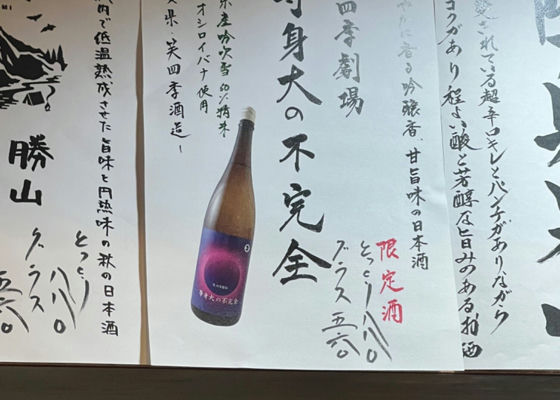 されている超辛口キレとパンチがありながら
コクがあり程よい酸と芳醇な旨みのあるお酒
やかに香る吟醸香、甘旨味の日本酒
限定酒
とっくり 八八〇
グラス 五六〇
四季劇場
身大の不完全
県産吟吹雪60%精米
オシロイバナ使用
県・笑四季酒造ー
等身大の不完全
内で低温熟成させた旨味と円熟味の秋の日本酒
とっくり 八八〇
グラス 五六〇
勝山